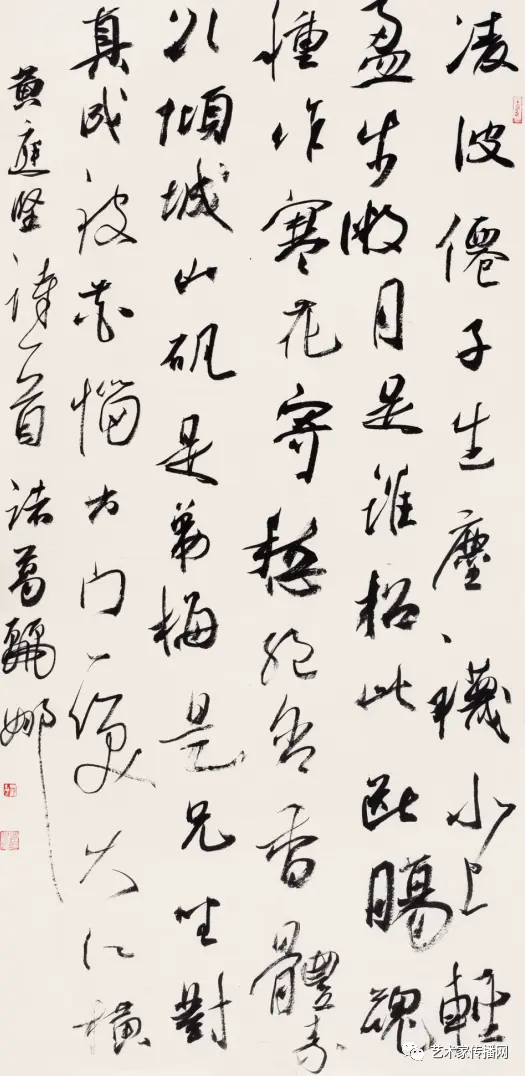 凌波僊子生塵襪水上輕
盈步微月是誰招此斷腸魂
種作寒花寄愁絕含香體素
欲傾城山矾是弟梅是兄坐對
真成被花惱出門一笑大江橫
黄庭堅詩一首 諸葛麗娜
艺术家传播网